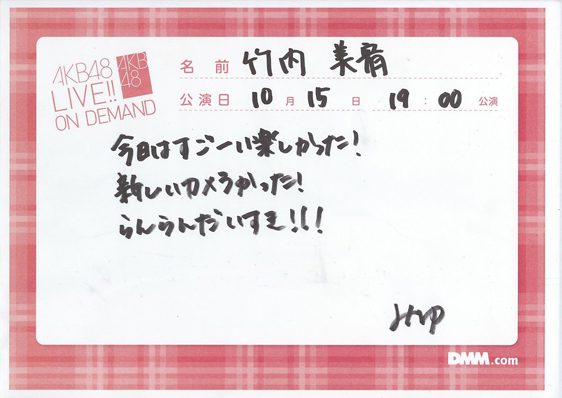 AKB48
LIVE!!
ON DEMAND
AKB
48
名前 竹内 美宥
公演日 10月 15日 19:00 公演
今日はすごーい楽しかった!
新しいカメラかった!
らんらんだいすき!!!
DMM.com